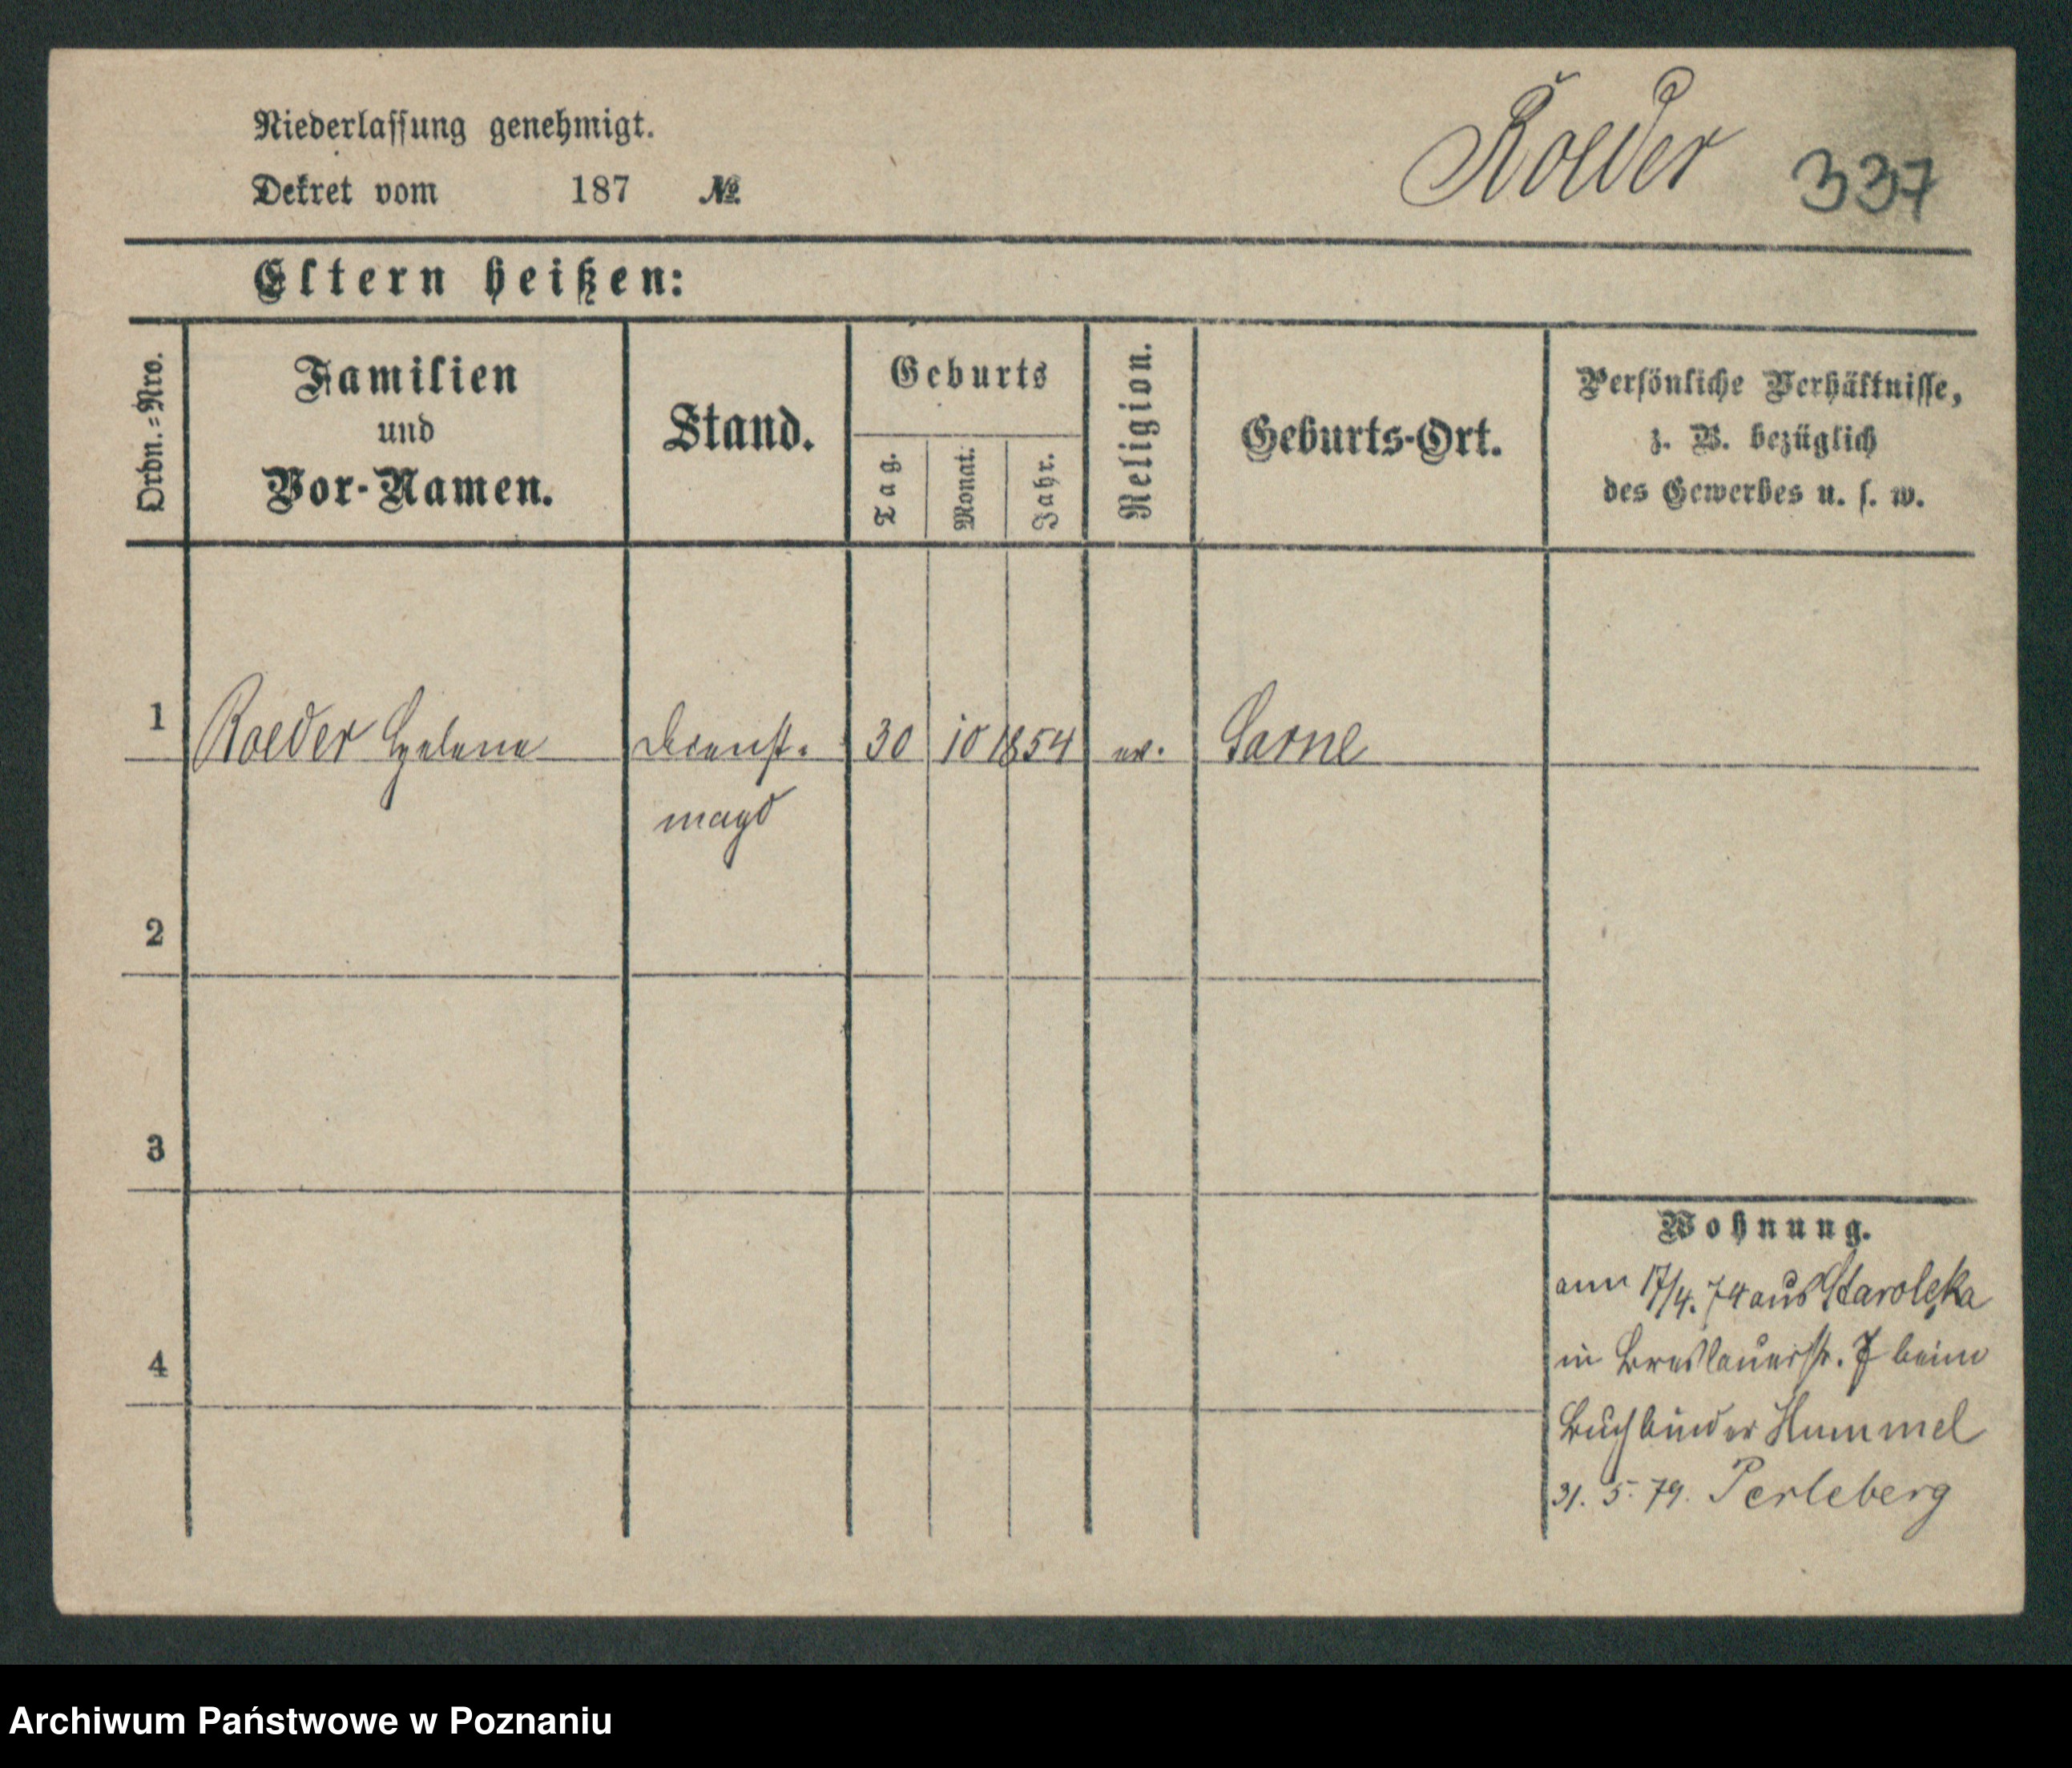 Niederlassung genehmigt.
Roeder 337
Dekret vom 187 №
Eltern heißen:
Ordn.=Nro.
Familien
und
Vor-Namen.
Stand.
Geburts
Tag.
Monat.
Jahr.
Religion.
Geburts-Ort.
Persönliche Verhältnisse,
z. B. bezüglich
des Gewerbes u. s. w.
1 Roeder Helene Dienst- 30 10 1854 ev. Sarne
magd
2
3
4
Wohnung.
am 17/4. 74 aus Starolęka
in Breslauerstr. 7 beim
Buchbinder Hummel
31. 5. 79. Perleberg
Archiwum Państwowe w Poznaniu